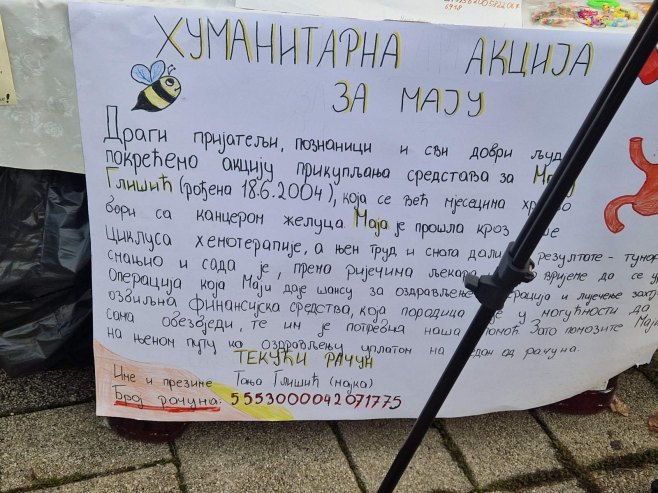 ХУМАНИТАРНА АКЦИЈА
ЗА МАЈУ
Драги пријатељи, познаници и сви добри људ
покрећемо акцију прикупљања средстава за Мају
Глишић (рођена 18.6.2004), која се већ мјесецима хр
бори са канцером желуца. Маја је прошла кроз
циклуса хемотерапије, а њен труд и снага дали резултате - тумор
смањио и сада је, према ријечима љекара вријеме да се
Операција која Мају даје шансу за оздрављење. и лијечење
озвиљна финансијска средства, која породица у могућности да
сама обезвједи, те им је потребна наша Зато помозите Мај
на њеном путу ка оздрављењу уплатом на од рачуна.
ТЕКУЋИ РАЧУН
Име и презиме Тања Глишић (мајка)
Број рачуна: 5553000042071775